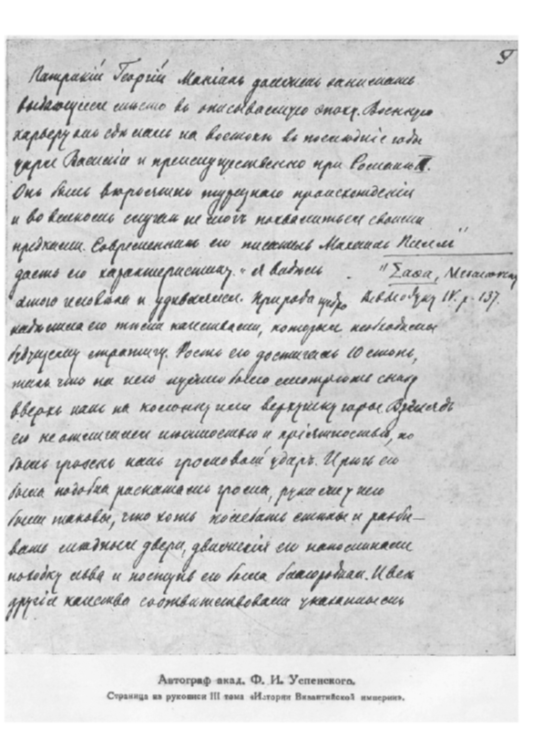 Патрикий Георгий Маниак должен занимать
выдающееся место в описываемую эпоху. Военную
карьеру он сделал на востоке в последние годы
царя Василия и преимущественно при Романе III.
Онъ былъ вероятно турецкаго происхожденія
и во всякомъ случаѣ не могъ похвалиться своими
предками. Современникъ его писатель Михаилъ Пселлъ
даетъ его характеристику. „Я видѣлъ
этого человѣка и удивлялся. Природа щедро
надѣлила его тѣми качествами, которыя необходимы
будущему стратигу. Ростъ его достигалъ 10 стопъ,
такъ что на него нужно было смотрѣть снизу
вверхъ какъ на колонну или верхушку горы. Взглядъ
его не отличался нѣжностью и пріятностью, но
былъ грозенъ какъ громовый ударъ. И рѣчь его
была подобна раскатамъ грома, руки же у него
были таковы, что хоть колебать стѣны и разби-
вать мѣдныя двери, движенія его напоминали
походку льва и поступь его была благородна. И всѣ
другія качества соотвѣтствовали указаннымъ
" Σάθα, Μεσαιων.
Βιβλιοθήκη IV. p. 137.
Автограф акад. Ф. И. Успенского.
Страница из рукописи III тома «Истории Византийской империи».